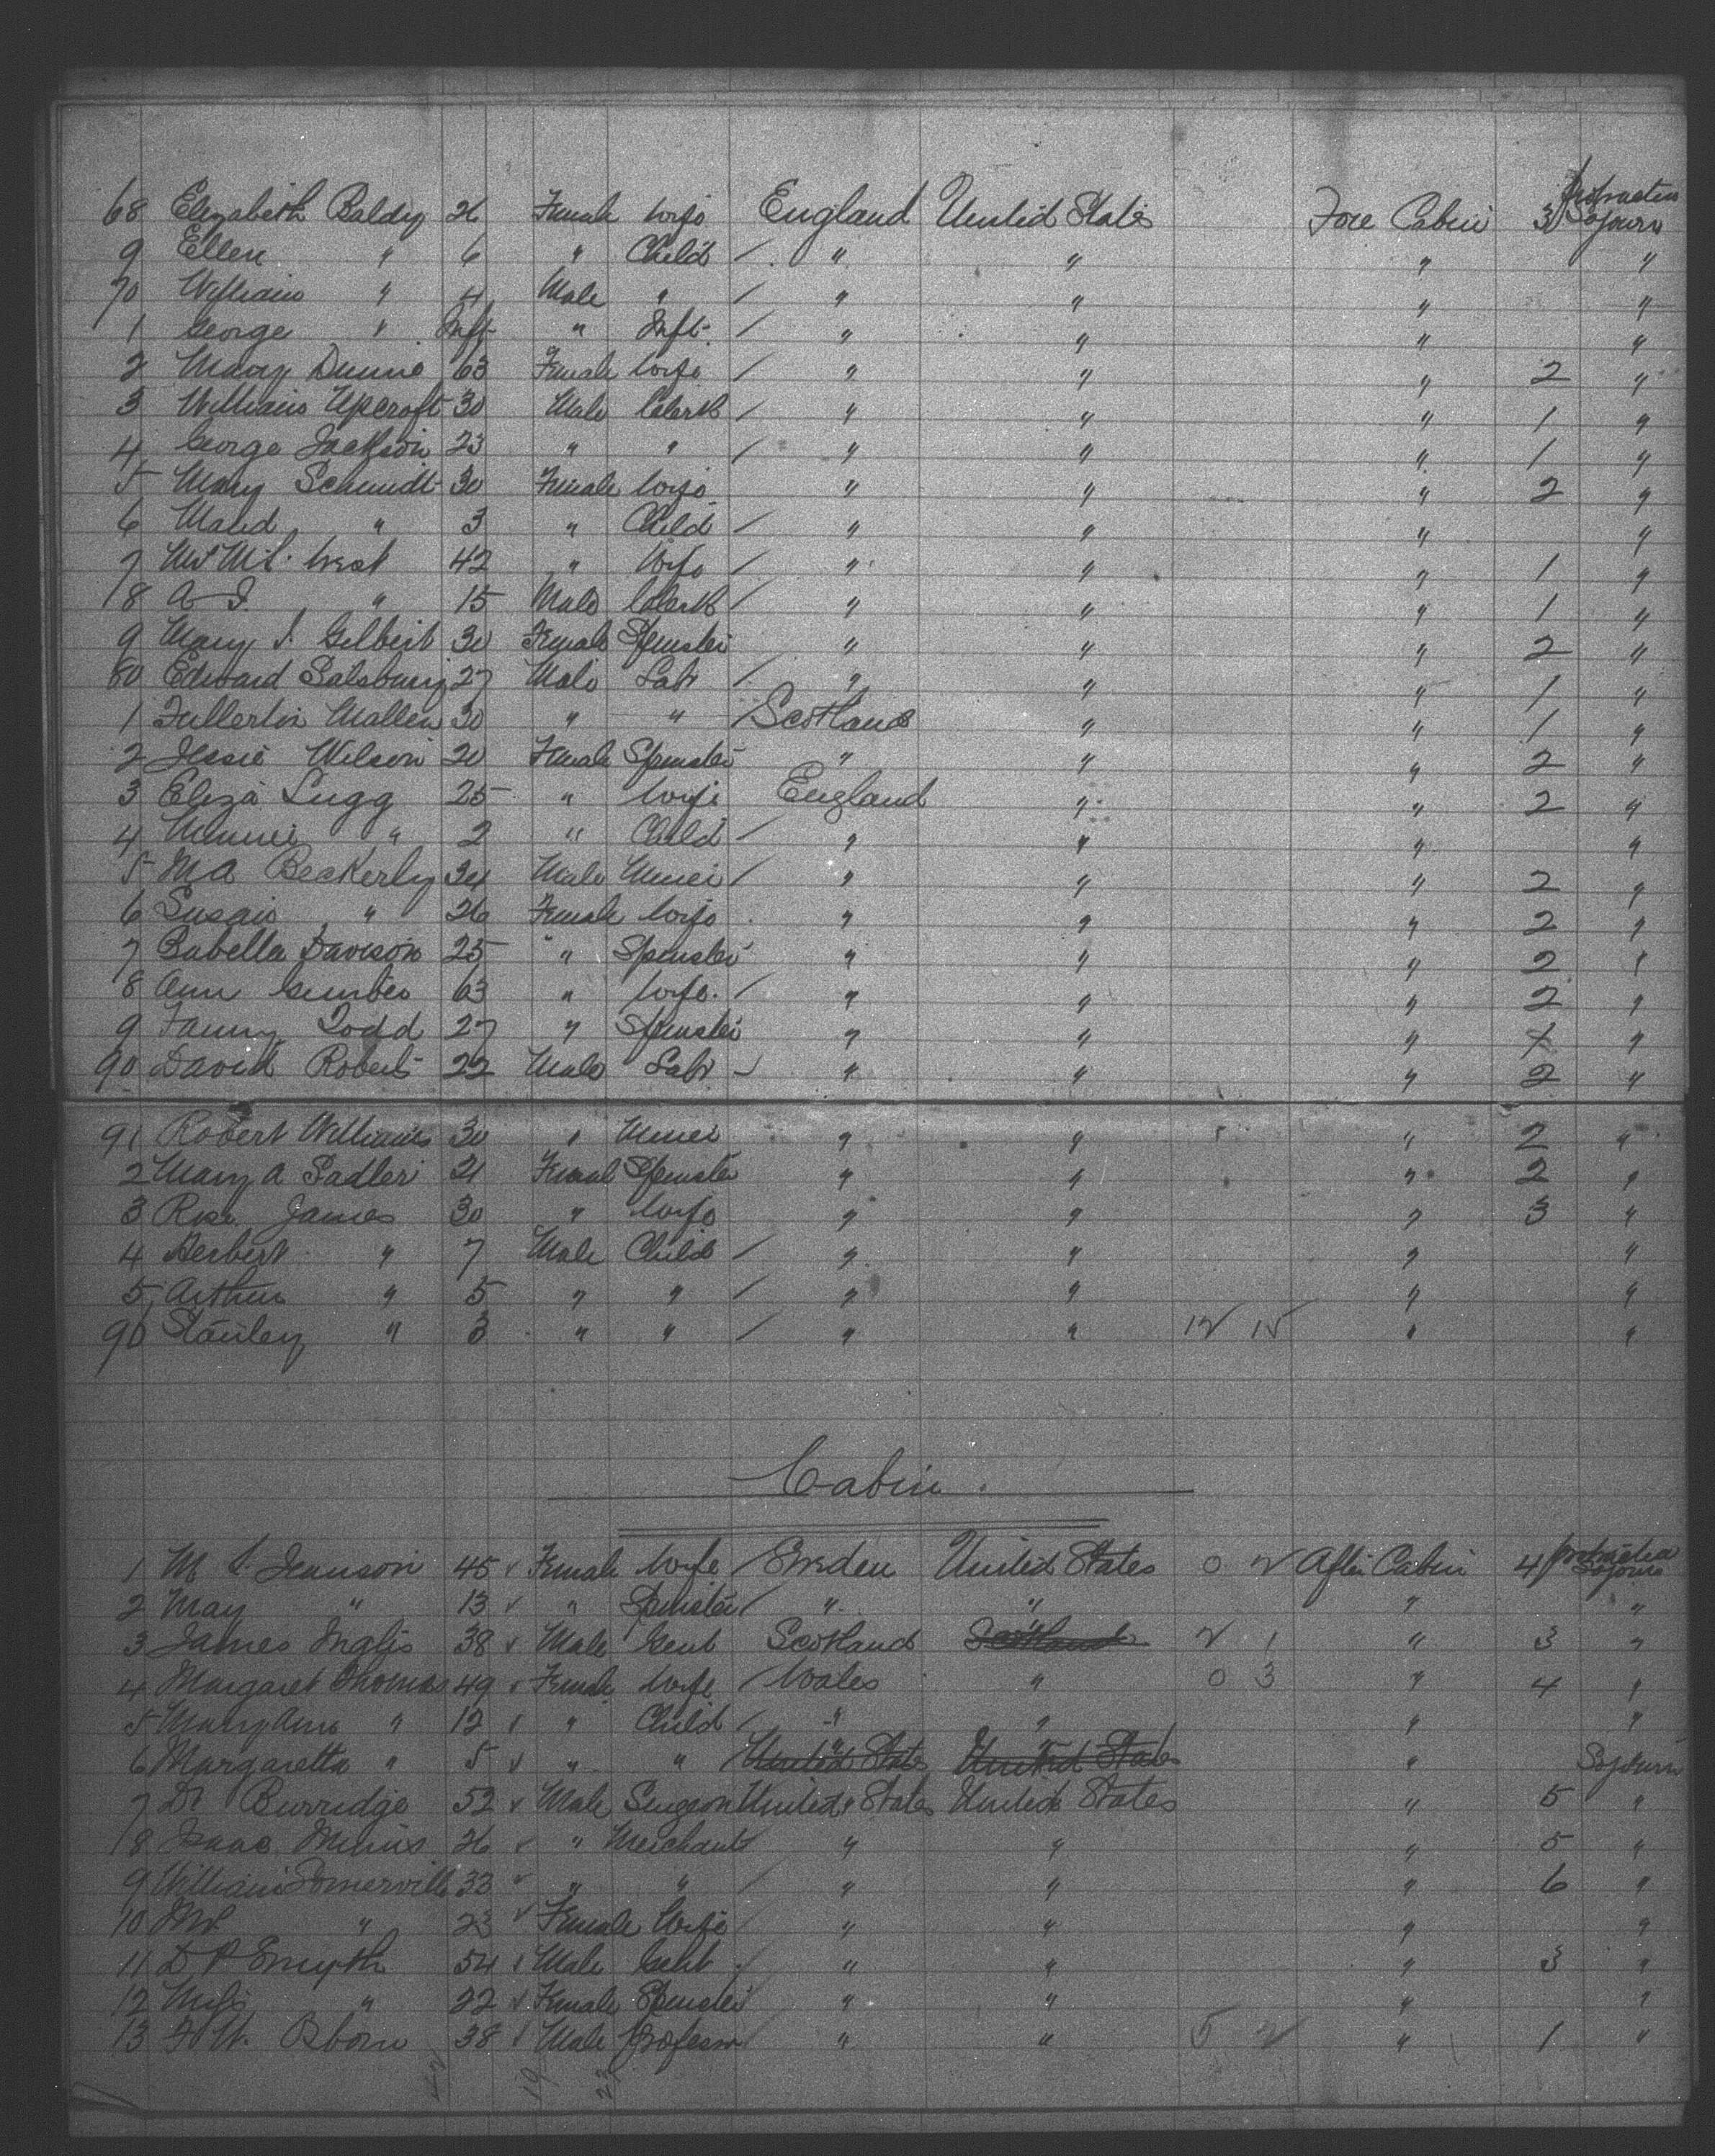 68 Elizabeth Baldry 26 Female Wife England United States Fore Cabin 3 Protracted Sojourn
9 Ellen " 6 " Child / " " " "
70 William " 4 Male " / " " " "
1 George " Inft " Inft. / " " " "
2 Mary Dunne 63 Female Wife / " " " 2 "
3 William Upcroft 30 Male Clerk / " " " 1 "
4 George Jackson 23 " " / " " " 1 "
5 Mary Schmidt 30 Female Wife " " " 2 "
6 Maud " 3 " Child / " " " "
7 West 42 " Wife / " " " 1 "
8 A " 15 Male Clerk / " " " 1 "
9 Mary Gilbert 30 Female Spinster " " " 2 "
80 Edward Salsbury 27 Male Labr / " " " 1 "
1 Fullerton Mallen 30 " " / Scotland " " 1 "
2 Jessie Wilson 20 Female Spinster " " " 2 "
3 Eliza Lugg 25 " Wife England " " 2 "
4 Minnie " 2 " Child / " " " "
5 M A Beckerly 34 Male Miner / " " " 2 "
6 Susan " 26 Female Wife " " " 2 "
7 Isabella Davison 25 " Spinster " " " 2 "
8 Ann 63 " Wife. / " " " 2 "
9 Fanny Todd 27 " Spinster " " " "
90 David Roberts 22 Male Labr " " " 2 "
91 Robert Williams 30 " Miner " " " 2 "
2 Mary A Sadler 21 Femal Spinster " " " 2 "
3 Rose James 30 " Wife " " " 3 "
4 Herbert " 7 Male Child / " " " "
5 Arthur " 5 " " / " " " "
90 Stanley " 3 " " / " " 12 15 " "
Cabin.
1 M Jeanson 45 Female Wife / Sweden United States 0 2 After Cabin 4 Protracted Sojourn
2 May " 13 " Spinster / " " " "
3 James Inglis 38 Male Gent Scotland Scotland 2 1 " 3 "
4 Margaret Thomas 49 Female Wife / Wales " 0 3 " 4 "
5 Mary Ann " 12 " Child / " " " "
6 Margaretta " 5 " " United States United States " Sojourn
7 Dr Burridge 52 Male Surgeon United States United States " 5 "
8 Isaac 26 " Merchant / " " " 5 "
9 William Somerville 33 " " / " " " 6 "
10 Mrs " 23 Female Wife / " " " "
11 D P Smyth 54 Male Gent / " " " 3 "
12 Miss " 22 Female Spinster " " " "
13 F W. Osborn 38 Male Professor / " " 5 2 " 1 "
19 23